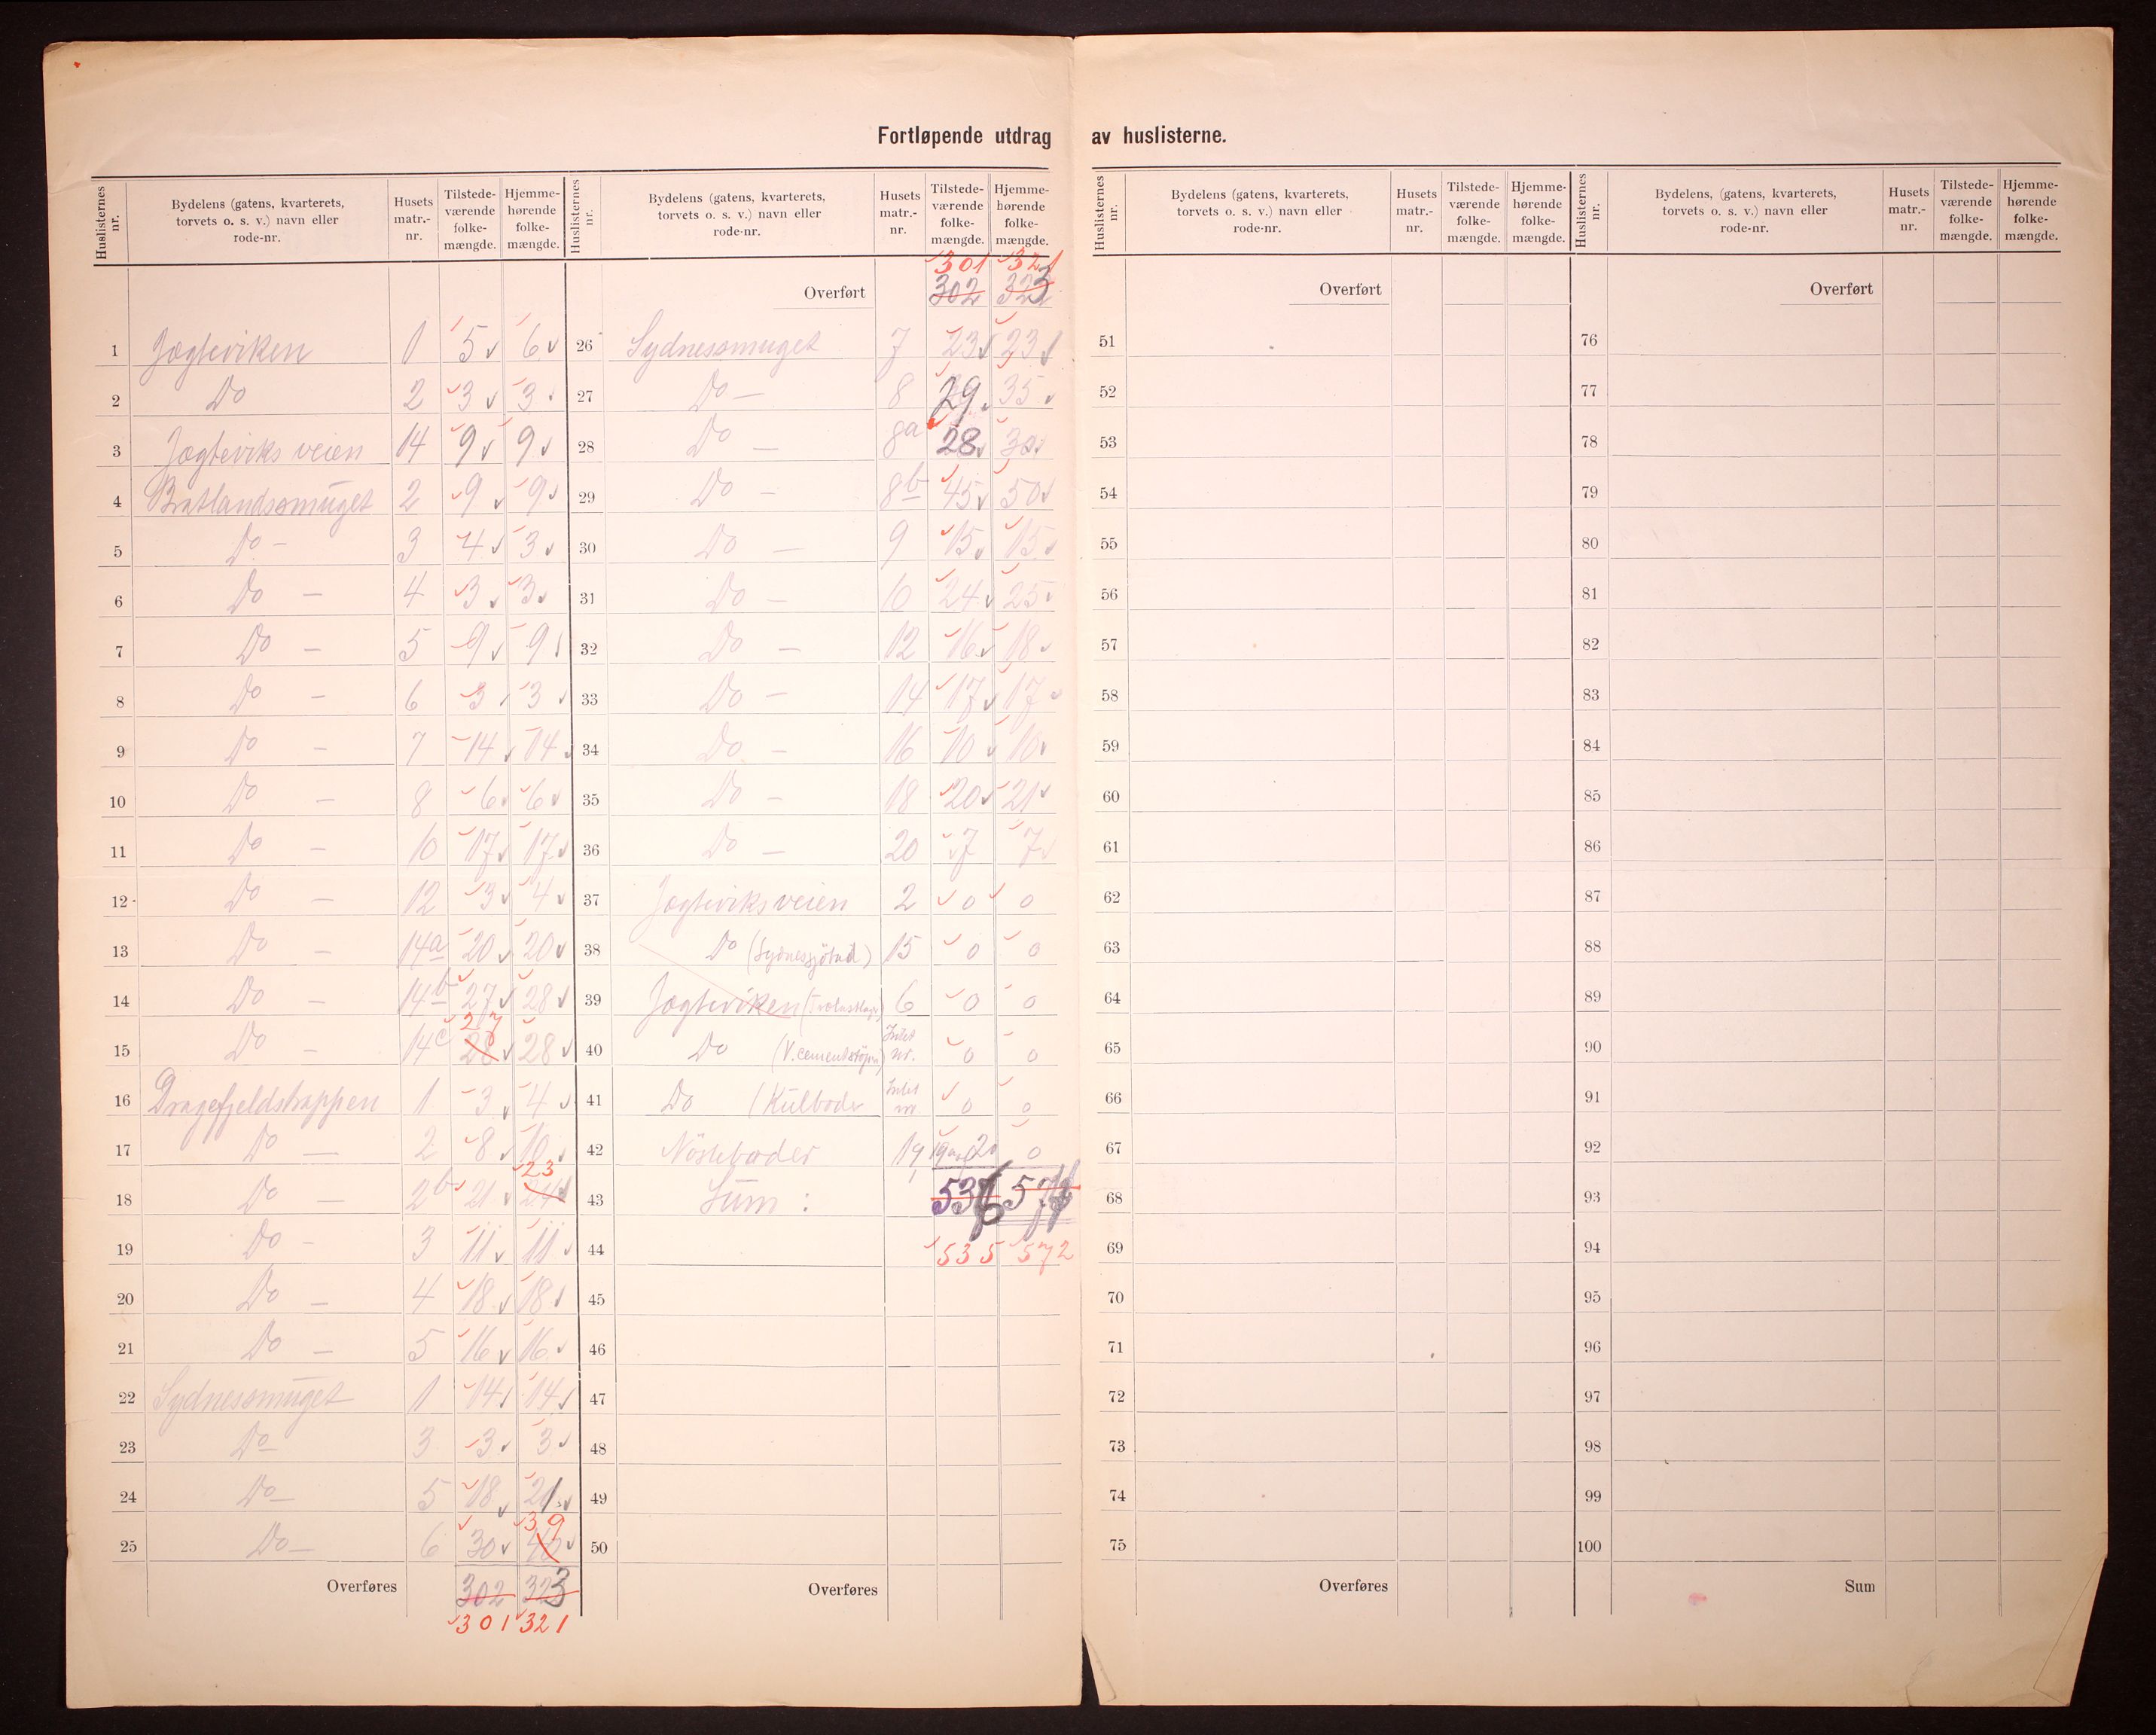 Fortløpende utdrag av huslisterne.
Huslisternes nr. | Bydelens (gatens, kvarterets, torvets o. s. v.) navn eller rode-nr. | Husets matr.-nr. | Tilstede-værende folke-mængde. | Hjemme-hørende folke-mængde.
1 Jægteviken 1 5 6
2 Do 2 3 3
3 Jægteviks veien 14 9 9
4 Bratlandssmuget 2 9 9
5 Do - 3 4 3
6 Do - 4 3 3
7 Do - 5 9 9
8 Do - 6 3 3
9 Do - 7 14 14
10 Do - 8 6 6
11 Do - 10 17 17
12 Do - 12 3 4
13 Do - 14a 20 20
14 Do - 14b 27 28
15 Do - 14c 28 27 28
16 Dragefjeldstrappen 1 3 4
17 Do - 2 8 10
18 Do - 2b 21 24 23
19 Do - 3 11 11
20 Do - 4 18 18
21 Do - 5 16 16
22 Sydnessmuget 1 14 14
23 Do 3 3 3
24 Do 5 18 21
25 Do 6 30 40 39
Overføres 302 323
301 321
Huslisternes nr. | Bydelens (gatens, kvarterets, torvets o. s. v.) navn eller rode-nr. | Husets matr.-nr. | Tilstede-værende folke-mængde. | Hjemme-hørende folke-mængde.
301 321
Overført 302 323
26 Sydnessmuget 7 23 23
27 Do - 8 29 35
28 Do - 8a 28 30
29 Do - 8b 45 50
30 Do - 9 15 15
31 Do - 10 24 25
32 Do - 12 16 18
33 Do - 14 17 17
34 Do - 16 10 10
35 Do - 18 20 21
36 Do - 20 7 7
37 Jægteviksveien 2 0 0
38 Do (Sydnessjöbad) 15 0 0
39 Jægteviken 6 0 0
40 Do Intet nr. 0 0
41 Do (Kulboder Intet nr. 0 0
42 Nösteboder 19 0
43 Sum:
44 535 572
45
46
47
48
49
50
Overføres
Huslisternes nr. | Bydelens (gatens, kvarterets, torvets o. s. v.) navn eller rode-nr. | Husets matr.-nr. | Tilstede-værende folke-mængde. | Hjemme-hørende folke-mængde.
Overført
51
52
53
54
55
56
57
58
59
60
61
62
63
64
65
66
67
68
69
70
71
72
73
74
75
Overføres
Huslisternes nr. | Bydelens, (gatens, kvarterets, torvets o. s. v.) navn eller rode-nr. | Husets matr.-nr. | Tilstede-værende folke-mængde. | Hjemme-hørende folke-mængde.
Overført
76
77
78
79
80
81
82
83
84
85
86
87
88
89
90
91
92
93
94
95
96
97
98
99
100
Sum